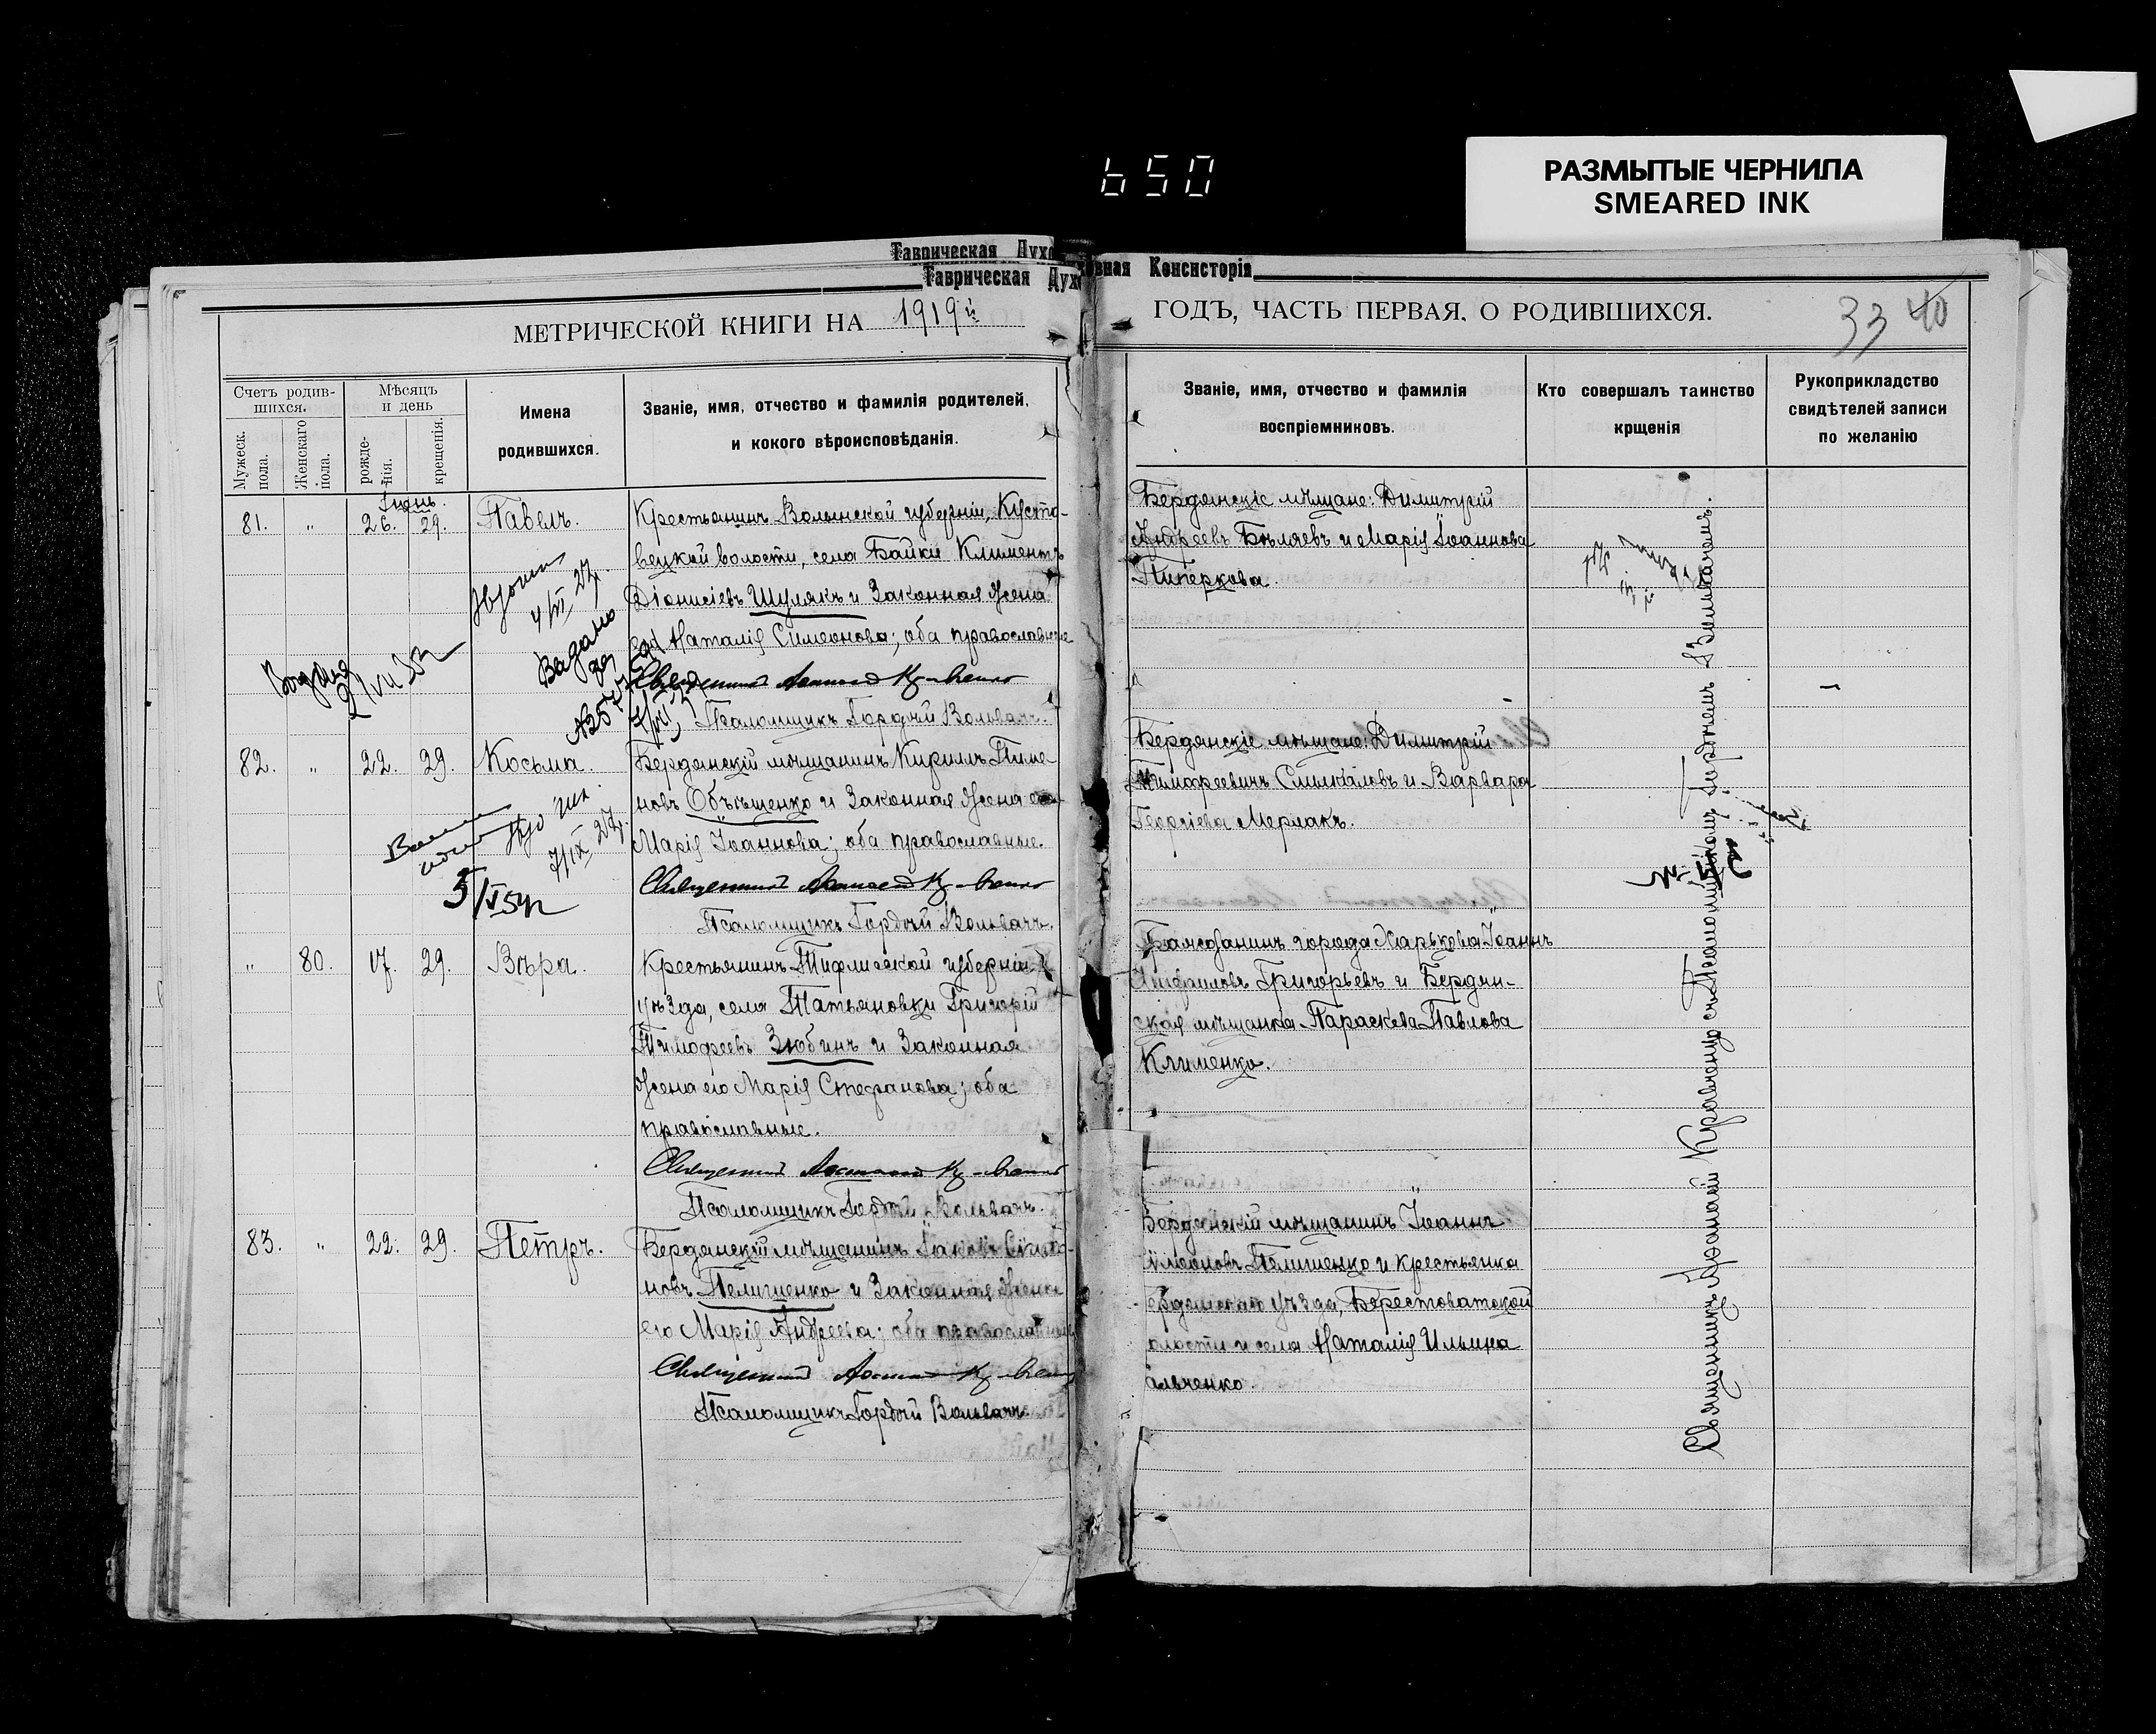 650
РАЗМЫТЫЕ ЧЕРНИЛА
SMEARED INK
Таврическая Духо
Таврическая Духовная Консисторія
МЕТРИЧЕСКОЙ КНИГИ НА 1919й
ГОДЪ, ЧАСТЬ ПЕРВАЯ, О РОДИВШИХСЯ.
33 40
Счетъ родив-
шихся.
Мужеск.
пола.
Женскаго
пола.
Мѣсяцъ
и день
рожде-
нія.
крещенія.
Имена
родившихся.
Званіе, имя, отчество и фамилія родителей,
и кокого вѣроисповѣданія.
Званіе, имя, отчество и фамилія
воспріемниковъ.
Кто совершалъ таинство
крщенія
Рукоприкладство
свидѣтелей записи
по желанію
81. " 26. 29. Павелъ.
Крестьянинъ Волынской губерніи, Кусто-
вецкой волости, села Байки Климентъ
Діонисіевъ Шулякъ и Законная жена
его Наталія Симеонова; оба православные
Псаломщикъ Гордѣй Вольвачъ.
Бердянскіе мѣщане: Димитрій
Андреевъ Бѣляевъ и Марія Іоаннова
Пиперкова.
82. " 22. 29. Косьма.
Бердянскій мѣщанинъ Кириллъ Пиме-
новъ Объѣщенко и Законная жена его
Марія Іоаннова; оба православные.
Псаломщикъ Гордѣй Вольвачъ.
Бердянскіе мѣщане: Димитрій
Тимофеевичъ Симкаловъ и Варвара
Георгіева Мерлакъ.
5/V 54
" 80. 17. 29. Вѣра.
Крестьянинъ Тифлисской губерніи
уѣзда, села Татьяновки Григорій
Тимофеевъ Зюбинъ и Законная
жена его Марія Стефанова; оба
православные.
Псаломщикъ Гордѣй Вольвачъ.
Гражданинъ города Харькова Іоаннъ
Григорьевъ и Бердян-
ская мѣщанка Параскева Павлова
Клименко.
83. " 22. 29. Петръ.
Бердянскій мѣщанинъ Іаковъ
новъ Пелишенко и Законная жена
его Марія Андреева; оба православные
Псаломщикъ Гордѣй Вольвачъ.
Бердянскій мѣщанинъ Іоаннъ
Пелишенко и крестьянка
уѣзда, Берестоватской
волости и села Наталія Ильина
Священникъ Аѳанасій Кравченко съ Псаломщикомъ Гордѣемъ Вольвачемъ.